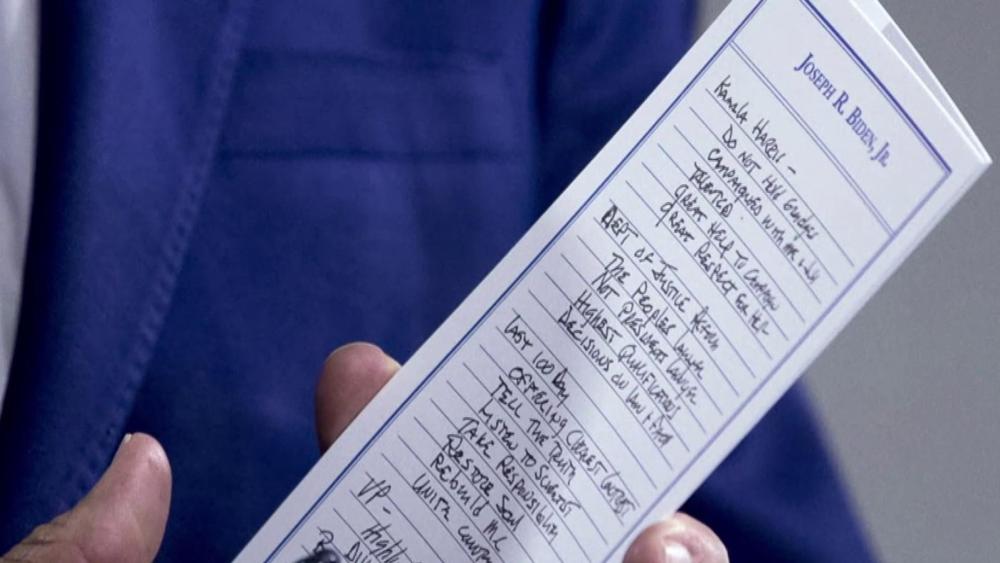 JOSEPH R. BIDEN, JR.
KAMALA HARRIS -
DO NOT HOLD GRUDGES
CAMPAIGNED WITH ME & JILL
TALENTED
GREAT HELP TO CAMPAIGN
GREAT RESPECT FOR HER
DEPT OF JUSTICE REFORM
THE PEOPLES LAWYER
NOT PRESIDENTS LAWYER
HIGHEST QUALIFICATIONS
DECISIONS ON LAW &
LAST 100 DAY
OFFERING CLEAREST CONTRAST
TELL THE TRUTH
LISTEN TO SCIENTIST
TAKE RESPONSIBILITY
RESTORE SOUL
REBUILD M.C
UNITE COUNTRY
VP -
Highly